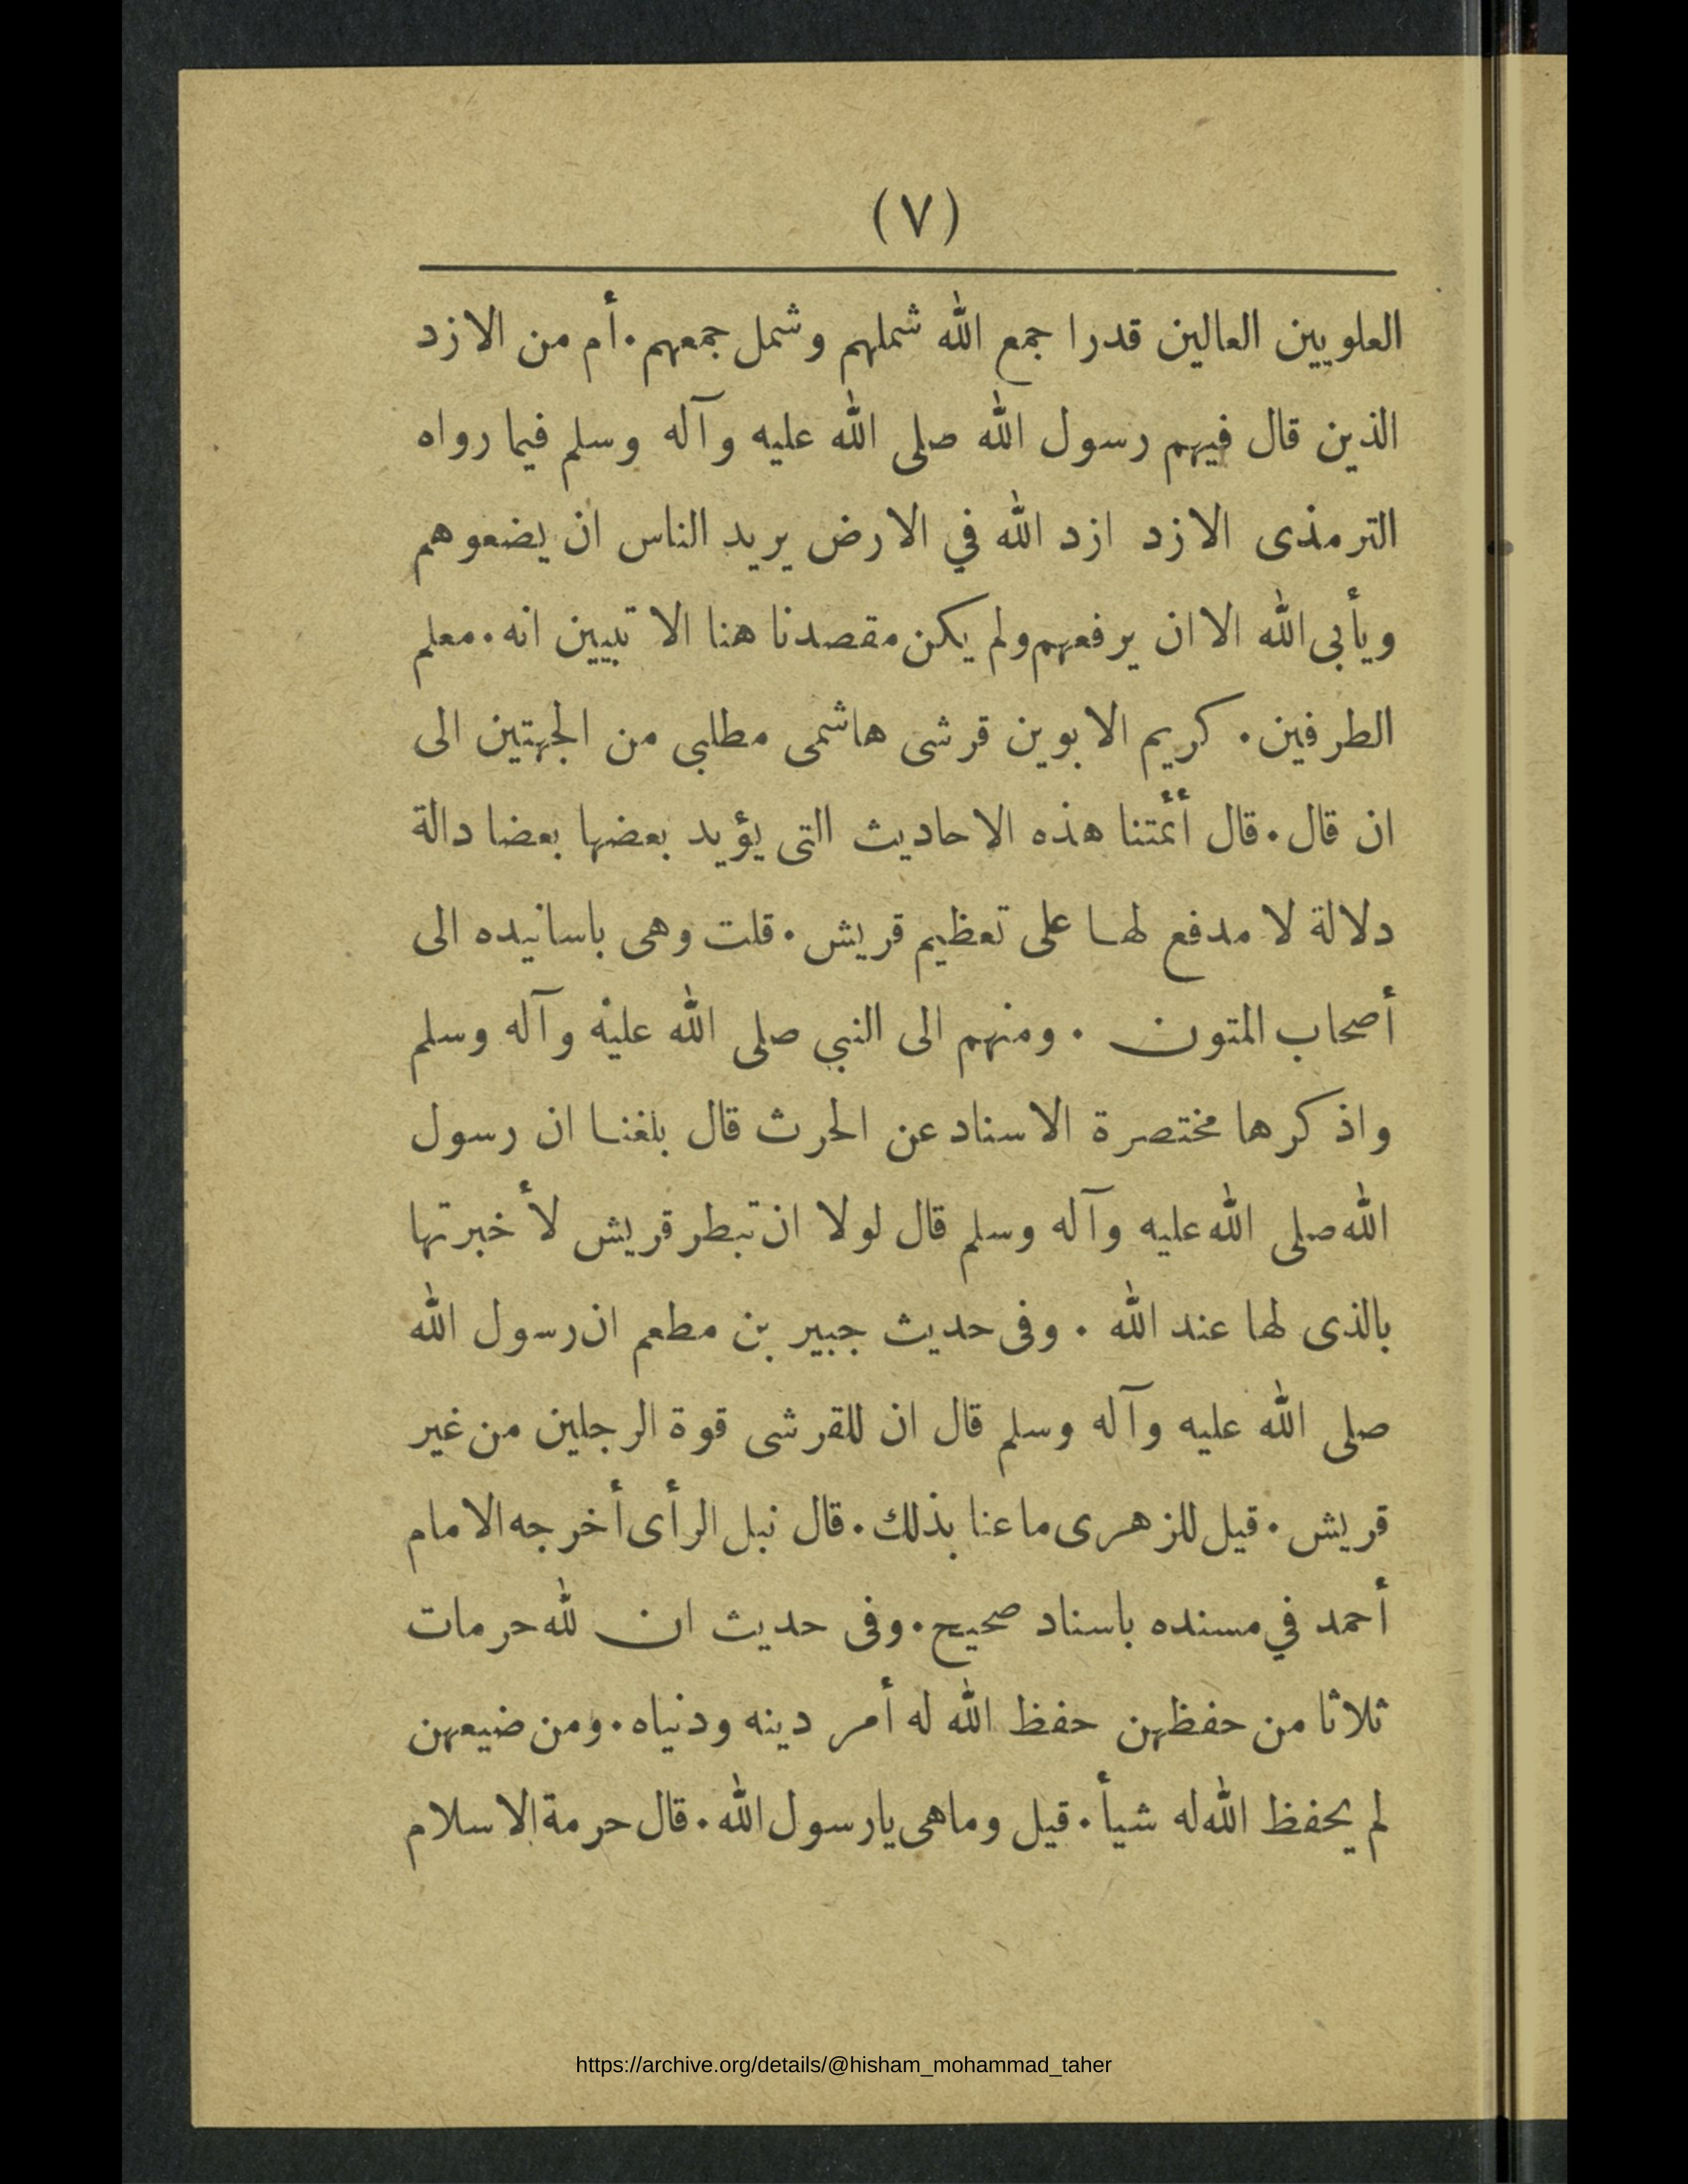 (٧)
العلويين العالين قدرا جمع الله شملهم وشمل جمعهم. أم من الازد
الذين قال فيهم رسول الله صلى الله عليه وآله وسلم فيما رواه
الترمذى الازد ازد الله في الارض يريد الناس ان يضعوهم
ويأبى الله الا ان يرفعهم ولم يكن مقصدنا هنا الا تبيين انه. معلم
الطرفين. كريم الابوين قرشى هاشمى مطلبي من الجهتين الى
ان قال. قال أئمتنا هذه الاحاديث التى يؤيد بعضها بعضا دالة
دلالة لا مدفع لها على تعظيم قريش. قلت وهى باسانيده الى
أصحاب المتون . ومنهم الى النبي صلى الله عليه وآله وسلم
واذكرها مختصرة الاسناد عن الحرث قال بلغنا ان رسول
الله صلى الله عليه وآله وسلم قال لولا ان تبطر قريش لأخبرتها
بالذى لها عند الله . وفى حديث جبير بن مطعم ان رسول الله
صلى الله عليه وآله وسلم قال ان للقرشى قوة الرجلين من غير
قريش. قيل للزهرى ما عنا بذلك. قال نبل الرأى أخرجه الامام
أحمد في مسنده باسناد صحيح. وفى حديث ان لله حرمات
ثلاثا من حفظهن حفظ الله له أمر دينه ودنياه. ومن ضيعهن
لم يحفظ الله له شيأ. قيل وماهى يارسول الله. قال حرمة الاسلام
https://archive.org/details/@hisham_mohammad_taher